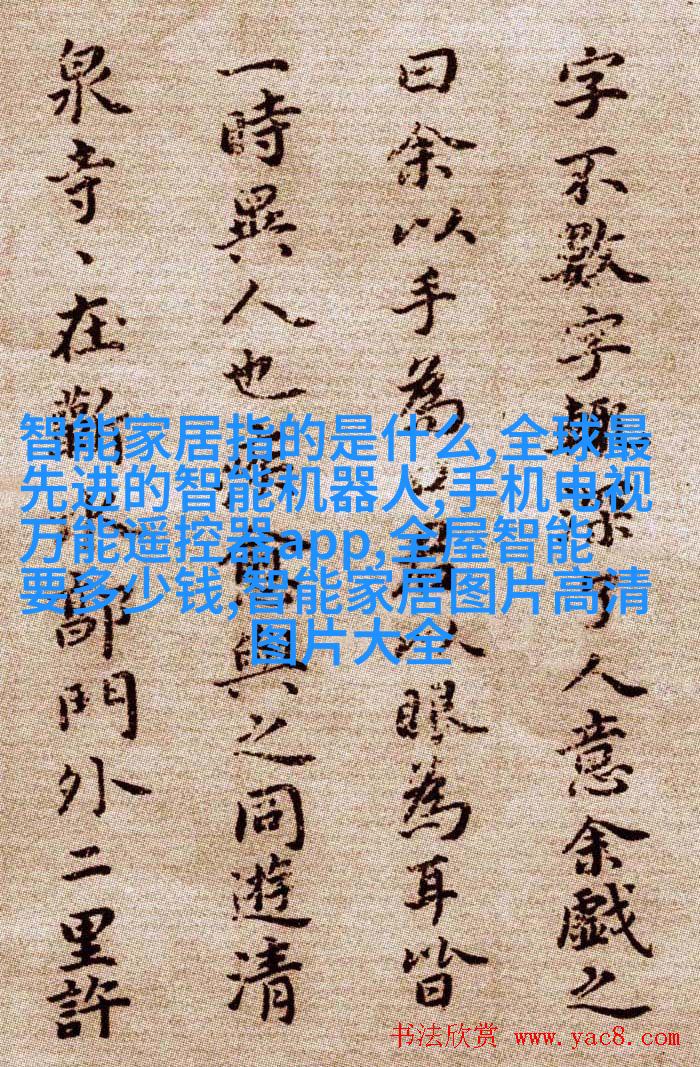 字不數字人意余戲之
曰余以手為以眼為耳皆
一時異人也與之同遊清
泉寺、在郭門外二里許
智能家居指的是什么,全球最
先进的智能机器人,手机电视
万能遥控器app,全屋智能
要多少钱,智能家居图片高清
图片大全
书法欣赏 www.yac8.com